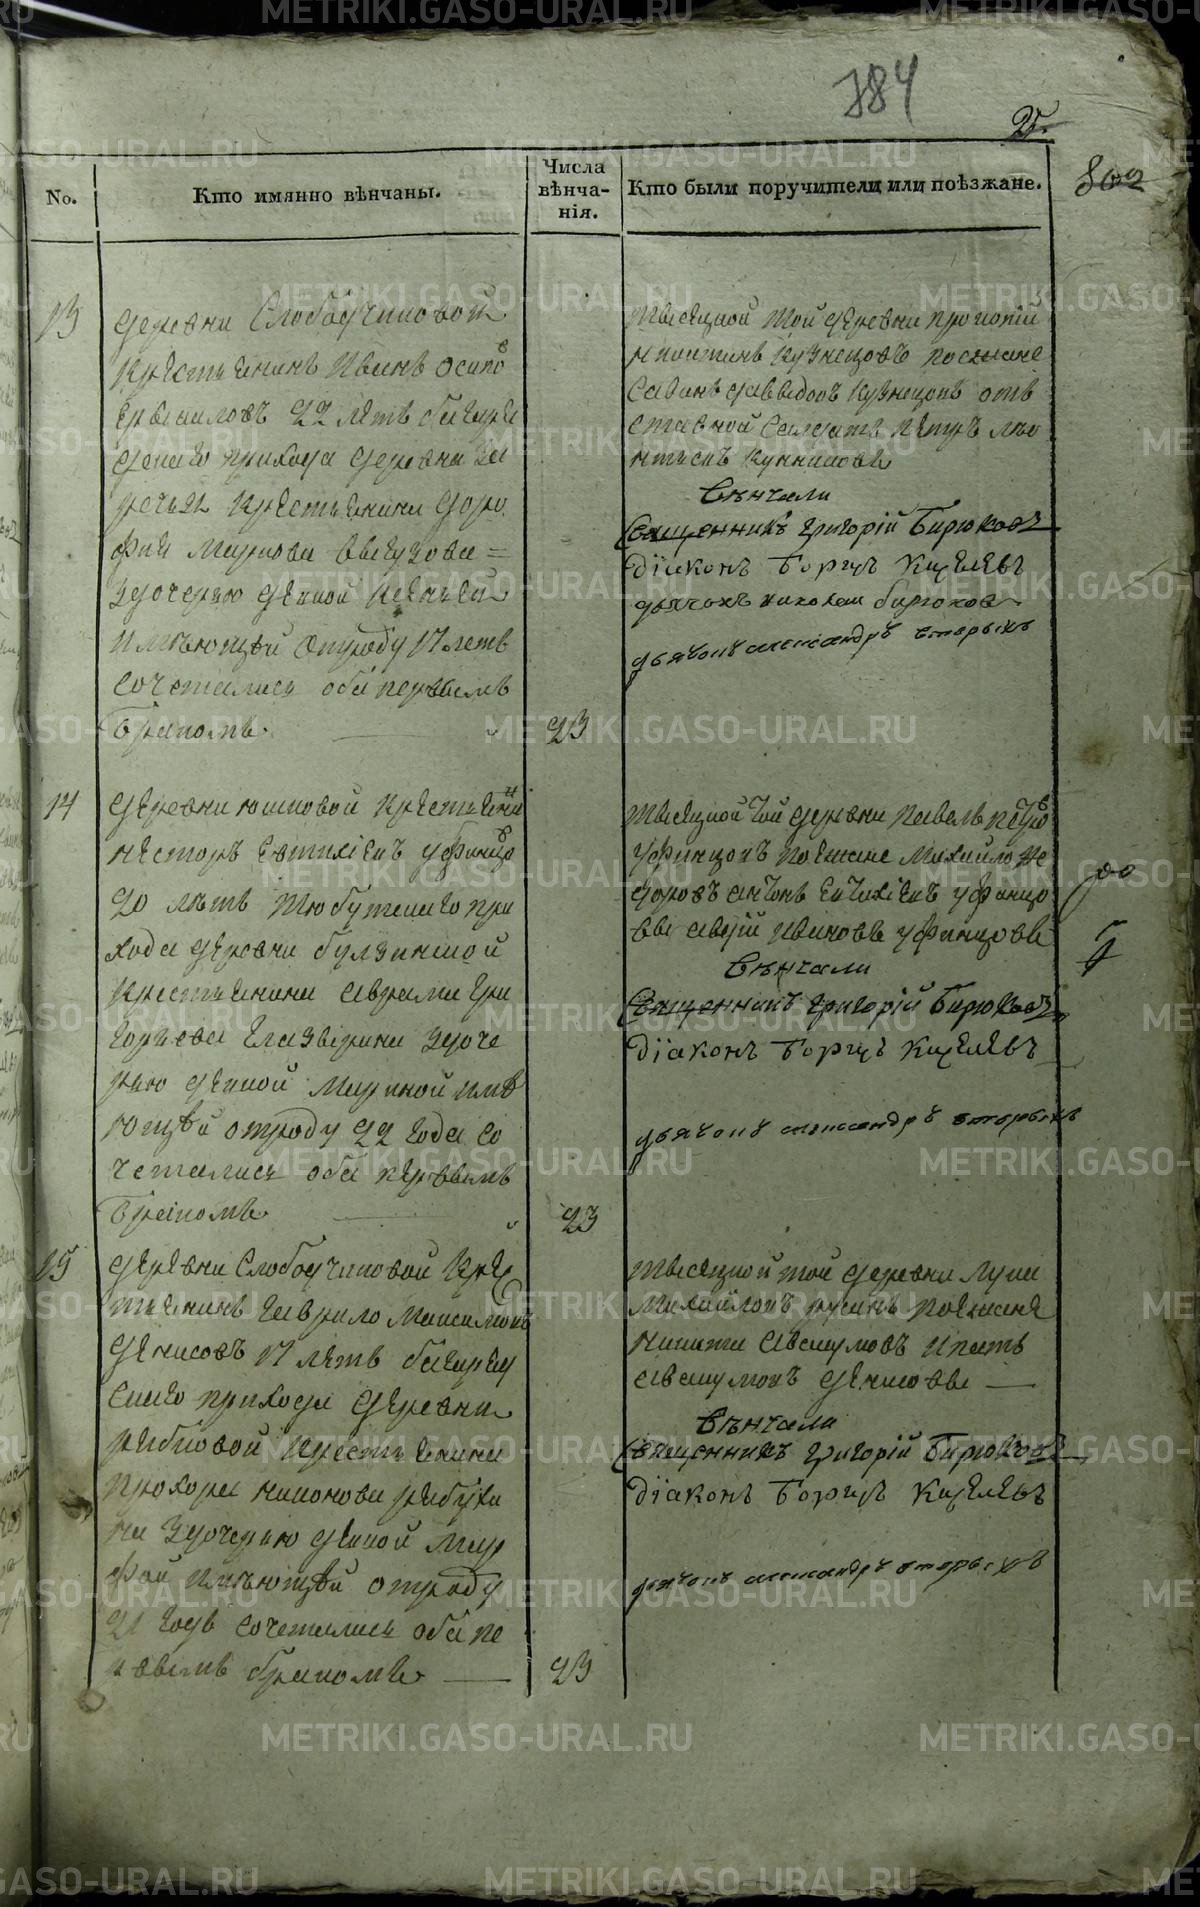 384
25.
802
No.
Кто имянно вѣнчаны.
Числа
вѣнча-
нія.
Кто были поручители или поѣзжане.
13
деревни Слободчиковой
крестьянинъ Иванъ Осипов
22 лѣтъ багаря
скаго прихода деревни за
речья крестьянина доро
фия Маркова
дочерью девкой Ксенией
имѣющей отроду 17 летъ
сочетались оба первымъ
бракомъ.
23
тысяцкой той деревни прокопий
Кузнецовъ поезжане
Кузнецовъ отъ
ставной Солдатъ Петръ лео
нтьевъ
Вѣнчали
Священникъ Григорій Бирюковъ
діаконъ Борисъ Киселевъ
дьячокъ николай бирюков
дьячокъ александръ вторыхъ
14
деревни юшковой крестьянин
несторъ Евтихіевъ Уфинцов
20 лѣтъ Тюбукскаго при
хода деревни булзинской
крестьянина аврама гри
горьева Глазырина доче
рью девкой Мариной имѣ
ющей отроду 22 года со
четались оба первымъ
бракомъ
23
тысяцкой той деревни павелъ петров
Уфинцовъ поезжане Михайло Фе
доровъ антонъ Евтихіевъ Уфинцо
вы Ивановъ Уфинцовъ
Вѣнчали
Священникъ Григорій Бирюковъ
діаконъ Борисъ Киселевъ
дьячокъ александръ вторыхъ
15
деревни Слободчиковой крес
тьянинъ Гаврило Максимовъ
денисовъ 17 лѣтъ багаряк
скаго прихода деревни
рыбниковой крестьянина
прохора никонова рябухи
на дочерью девкой Мар
фой имѣющей отроду
21 годъ сочетались оба пе
рвымъ бракомъ
23
тысяцкой той деревни Лука
Михайловъ русинъ поезжане
никита Авакумовъ ипатъ
авакумовъ денисовы
Вѣнчали
Священникъ Григорій Бирюковъ
діаконъ Борисъ Киселевъ
дьячокъ александръ вторыхъ
METRIKI.GASO-URAL.RU